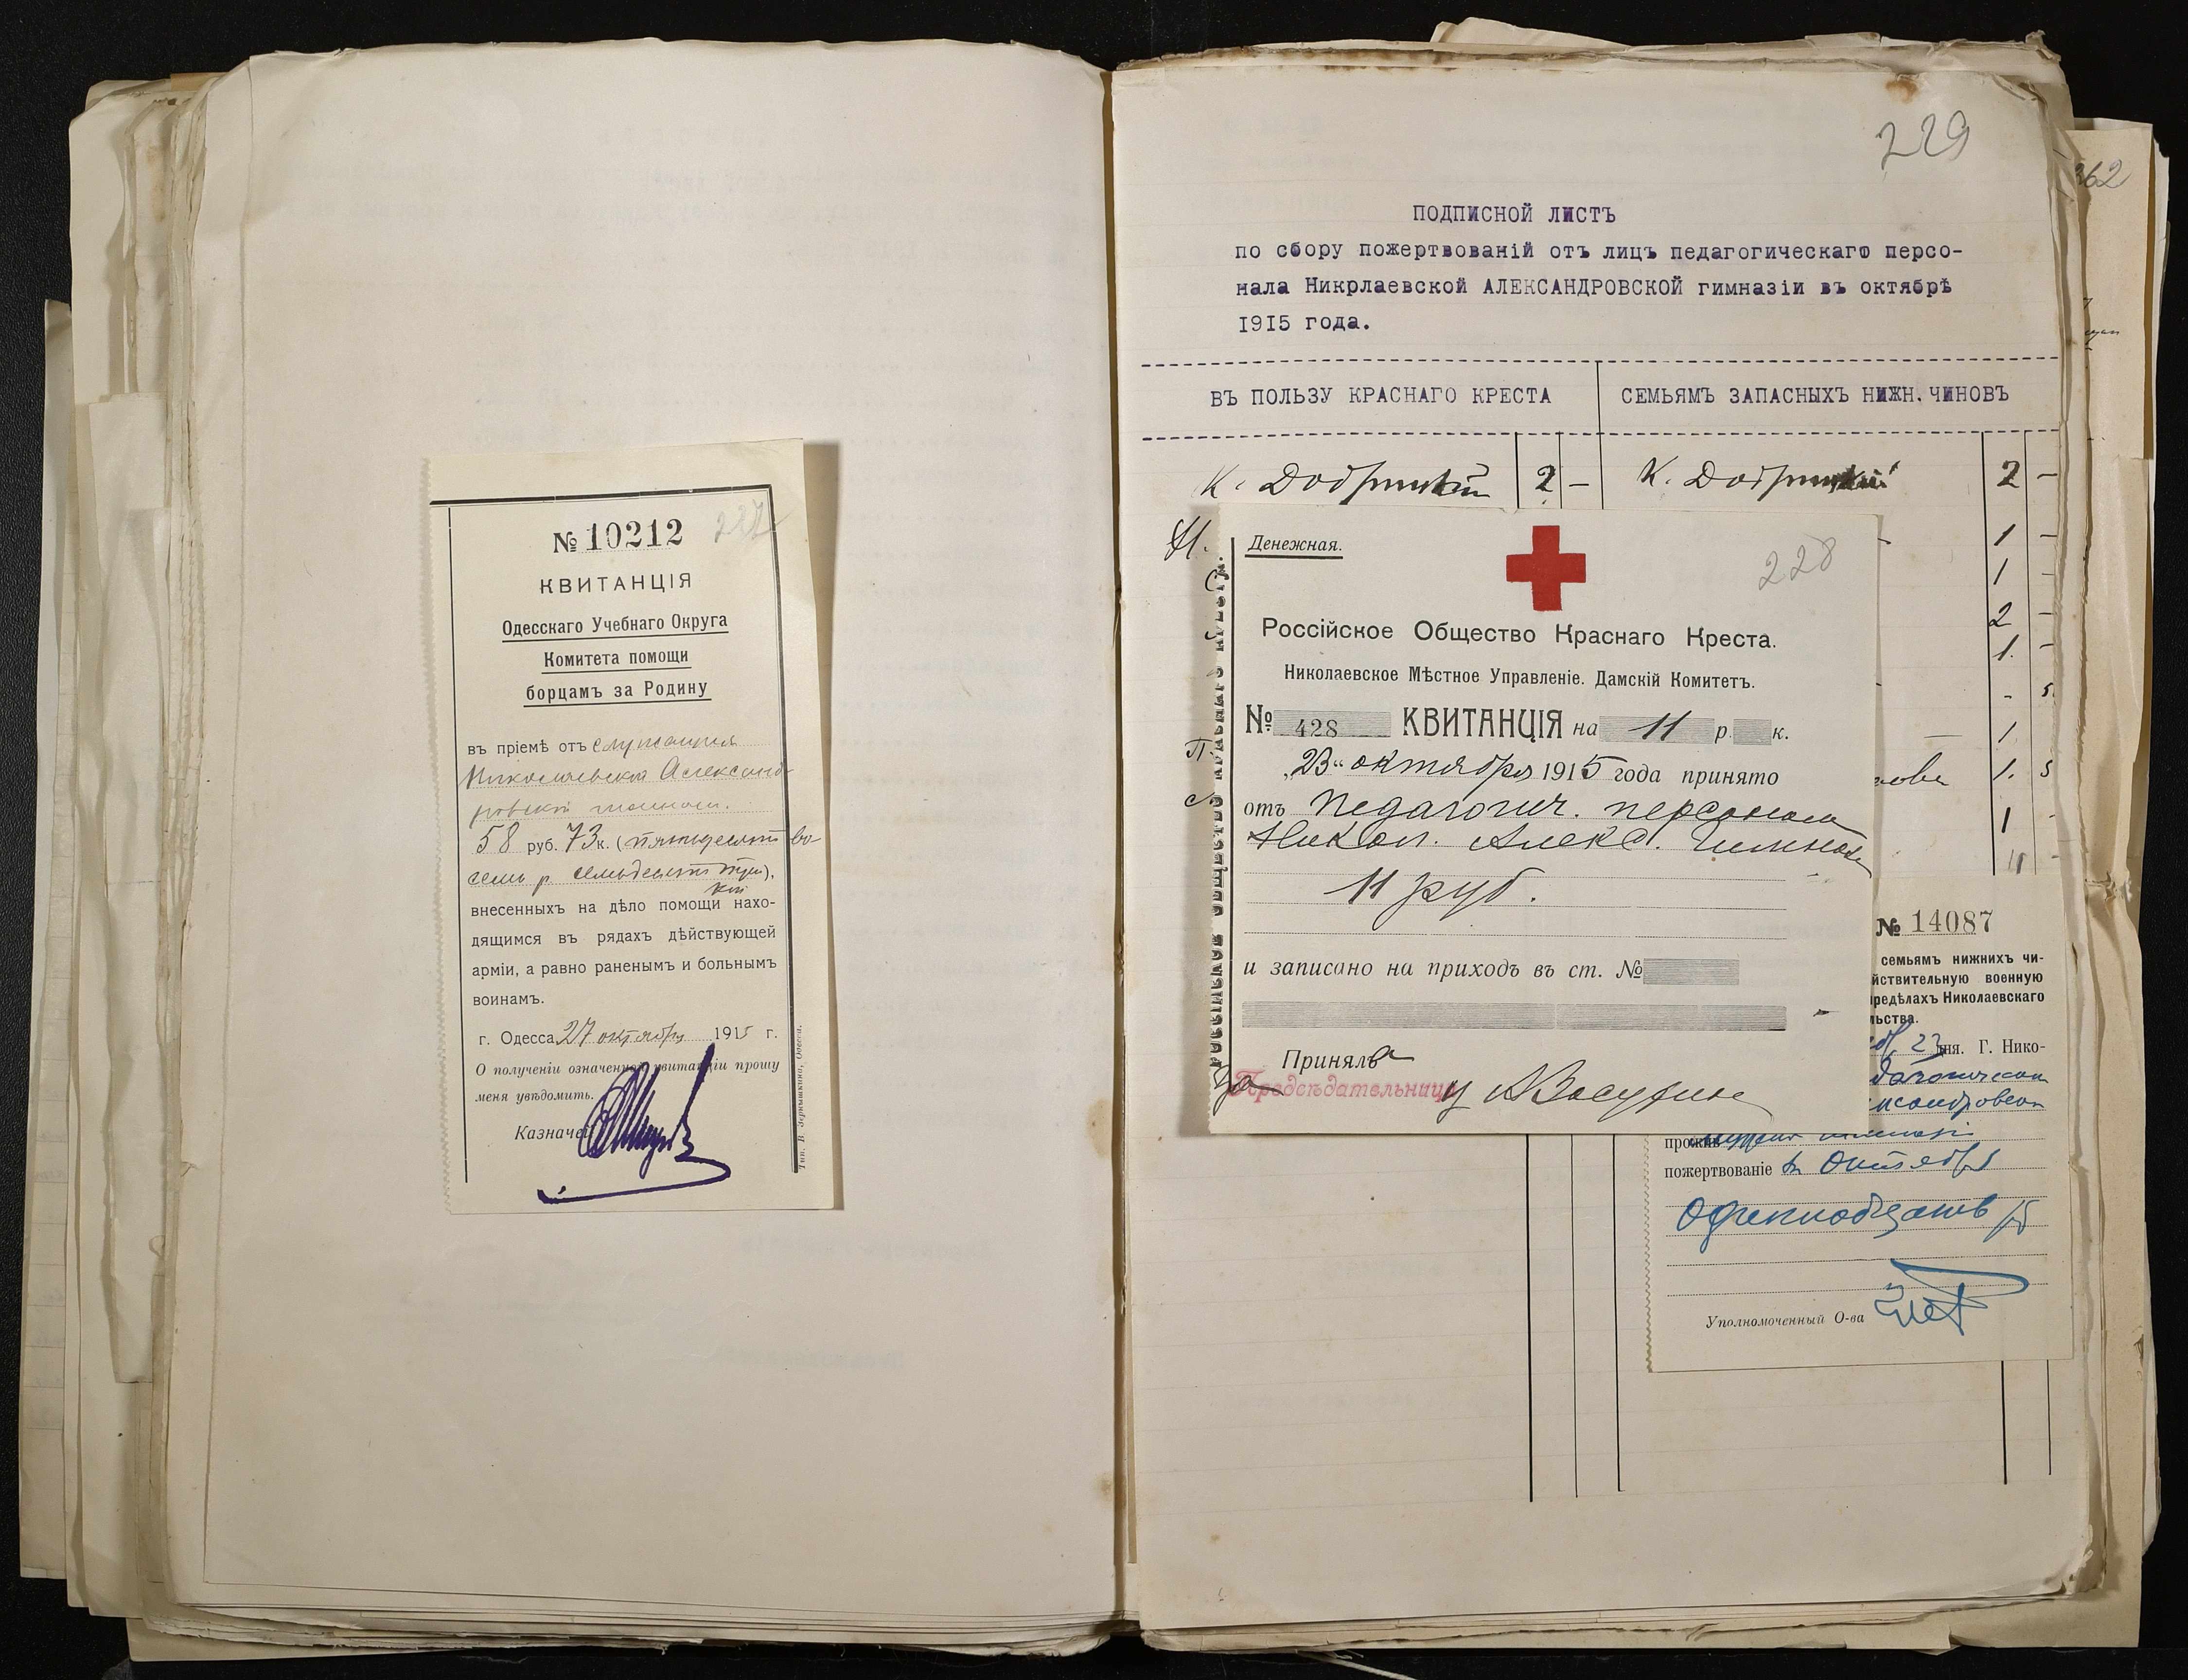 № 10212
227
КВИТАНЦІЯ
Одесскаго Учебнаго Округа
Комитета помощи
борцамъ за Родину
въ пріемѣ отъ служащихъ
Николаевской Александ-
ровской гимназіи.
58 руб. 73 к. (пятьдесятъ во-
семь р. семьдесятъ три).
коп
внесенныхъ на дѣло помощи нахо-
дящимся въ рядахъ дѣйствующей
арміи, а равно раненымъ и больнымъ
воинамъ.
г. Одесса 27 октября 1915 г.
О полученіи означенной квитанціи прошу
меня увѣдомить.
Казначей
Тип. В. Зернышкина, Одесса.
229
362
ПОДПИСНОЙ ЛИСТЪ
по сбору пожертвованій отъ лицъ педагогическаго персо-
нала Никрлаевской АЛЕКСАНДРОВСКОЙ гимназіи въ октябрѣ
1915 года.
ВЪ ПОЛЬЗУ КРАСНАГО КРЕСТА
СЕМЬЯМЪ ЗАПАСНЫХЪ НИЖН. ЧИНОВЪ
К. Добрицкій 2 – К. Добрицкій 2 –
1 –
1 –
2 –
1. –
- 5
1
1. 5
1 -
11 -
Денежная.
228
Россійское Общество Краснаго Креста.
Николаевское Мѣстное Управленіе. Дамскій Комитетъ.
№ 428 КВИТАНЦІЯ на 11 р. к.
„23“ октября 1915 года принято
отъ педагогич. персонала
Никол. Алекс. Гимназіи
11 руб.
и записано на приходъ въ ст. №
Принялъ
Предсѣдательница
№ 14087
семьямъ нижнихъ чи-
йствительную военную
предѣлахъ Николаевскаго
льства.
23 дня. Г. Нико-
дагогическ
ксандровской
прожив гимназіи
пожертвованіе въ Октябрѣ
Одиннадцать р
Уполномоченный О-ва